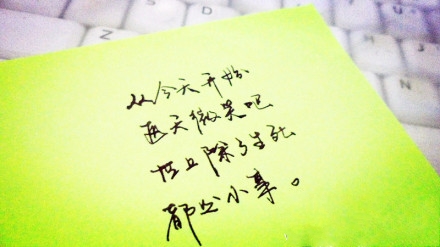 从今天开始
每天微笑吧
世上除了生死
都是小事。
Z